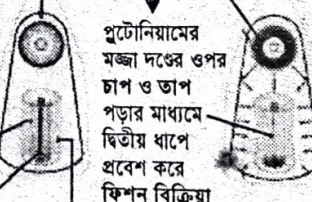 প্লুটোনিয়ামের
মজ্জা দণ্ডের ওপর
চাপ ও তাপ
পড়ার মাধ্যমে
দ্বিতীয় ধাপে
প্রবেশ করে
ফিশন বিক্রিয়া